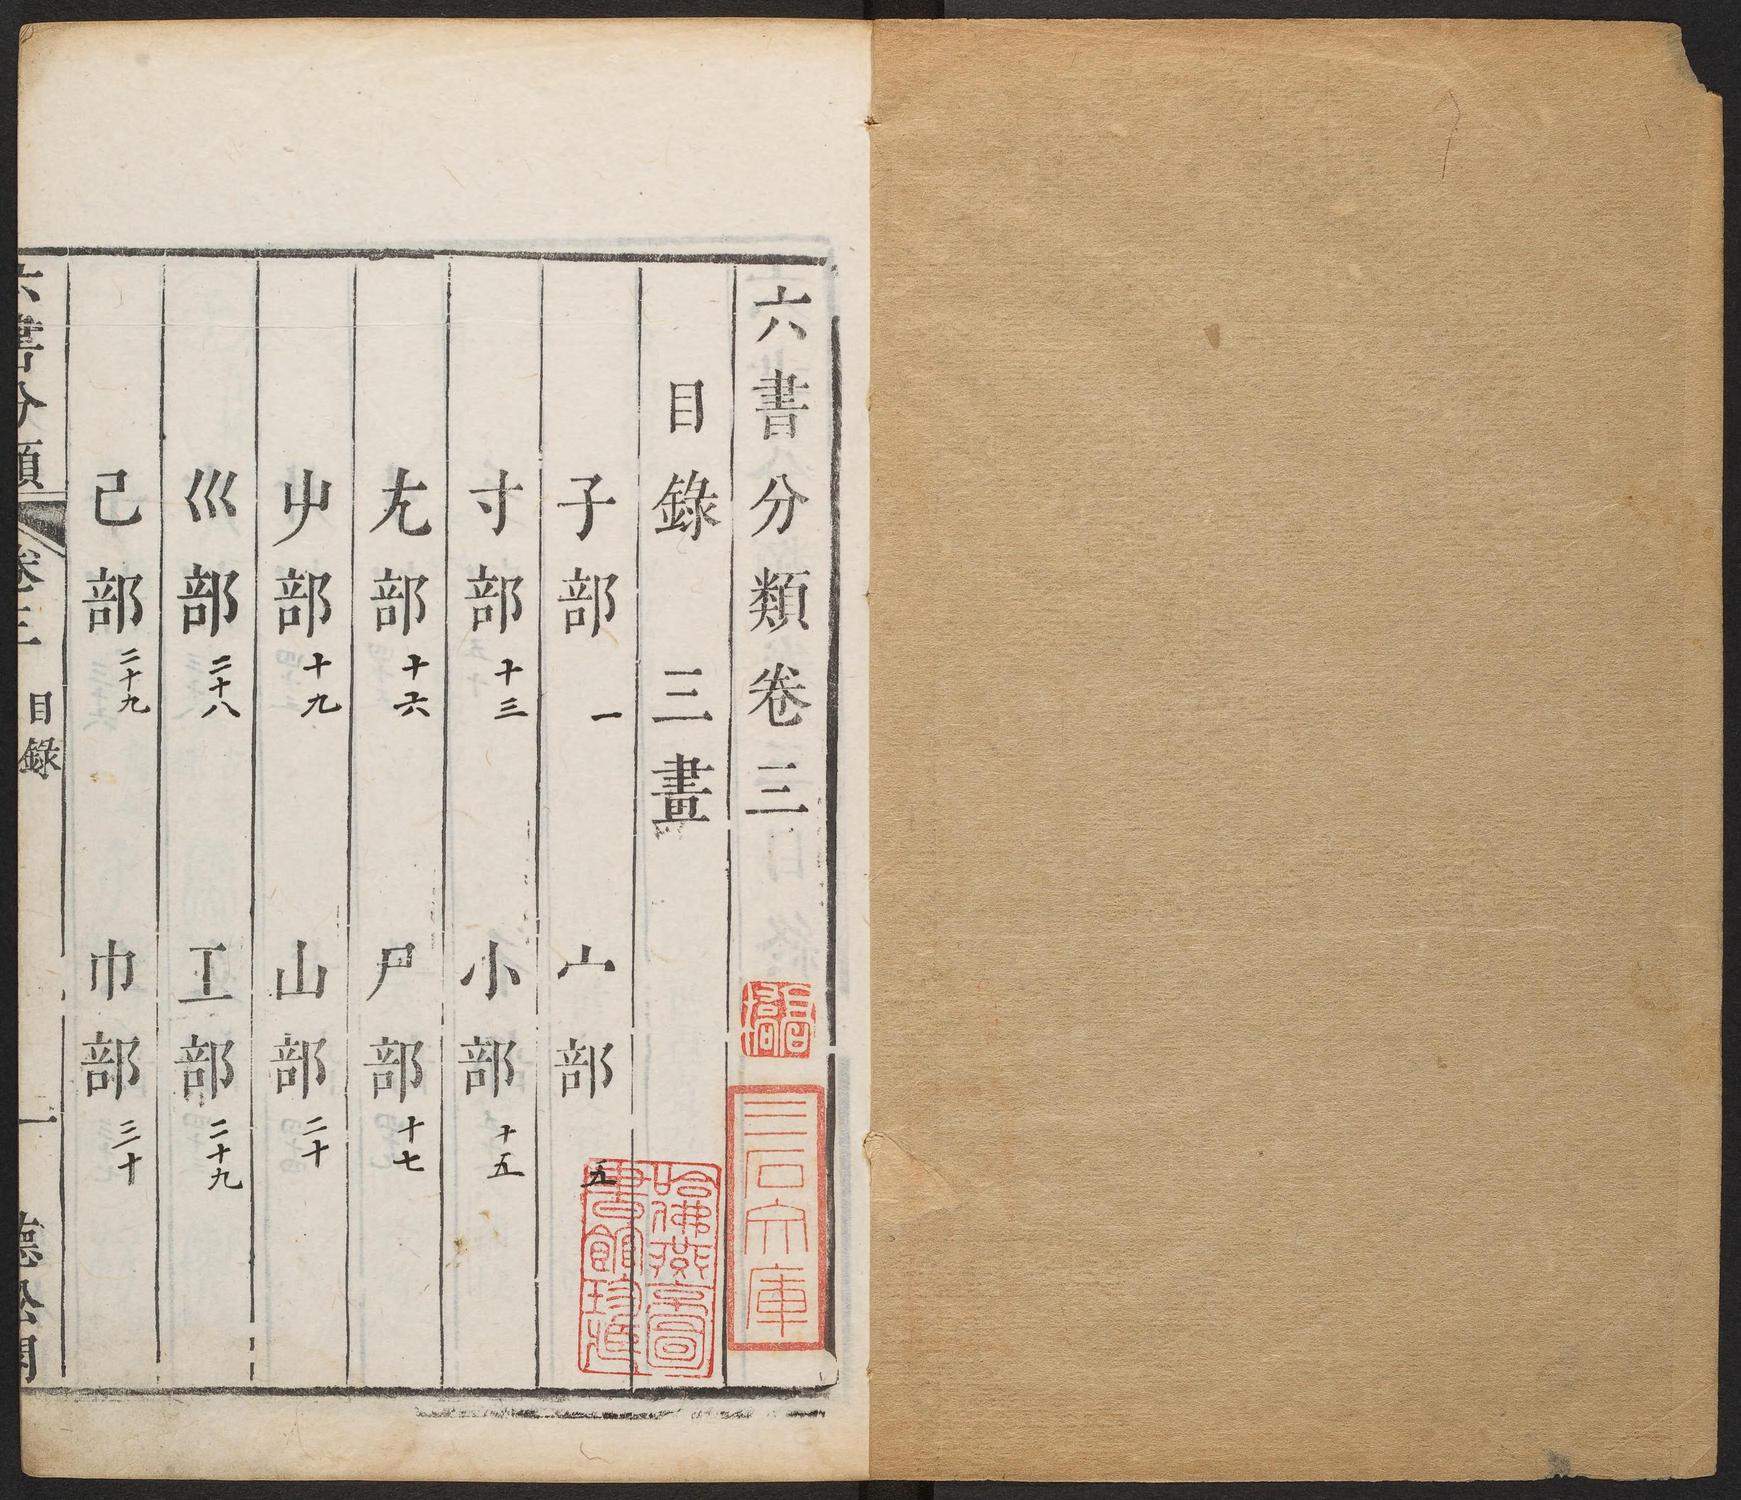 六書分類卷三
目錄 三畫
子部 一 宀部 五
寸部 十三 小部 十五
尢部 十六 尸部 十七
屮部 十九 山部 二十
巛部 二十八 工部 二十九
己部 二十九 巾部 三十
六書分類 卷三 目錄 一
三石文庫
哈佛燕京圖
書館珍藏